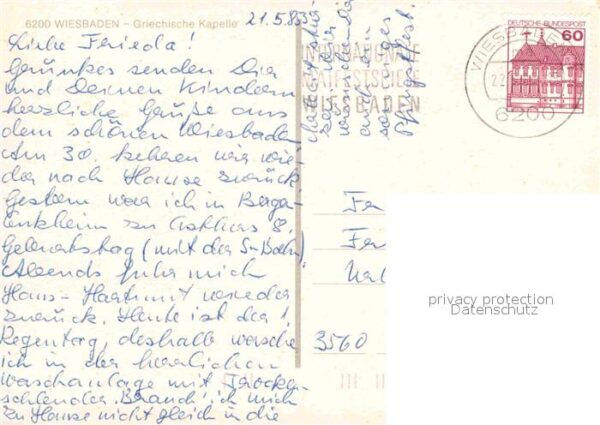 6200 WIESBADEN – Griechische Kapelle
21.5.83
Liebe Frieda!
senden Dir
und Deinen Kindern
herzliche Grüße aus
dem schönen Wiesbaden
Am 30. kehren wir wie-
der nach Hause zurück.
Gestern war ich in Bergen-
Enkheim zu 8.
Geburtstag (mit der S-Bahn).
Abends fuhr mich
Hans-Hartmut wieder
zurück. Heute ist der 1
Regentag, deshalb wasche
ich in der herrlichen
Waschanlage mit Trocken-
schleuder. Brauch' ich mich
zu Hause nicht gleich in die
Pfingstfest.
INTERNATIONALE
MAIFESTSPIELE
WIESBADEN
WIESBADEN
22.
6200
DEUTSCHE BUNDESPOST
60
3560
privacy protection
Datenschutz